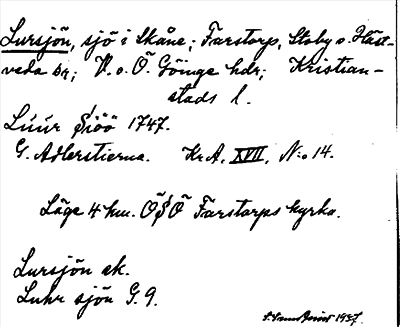 Lursjön, sjö i Skåne; Farstorp, Stoby o. Häst-
veda snr; V. o. Ö. Göinge hdr; Kristian-
stads l.
Lúúr Siöö 1747.
G. Adlerstierna. Kr. A, XVII, N:o 14.
Läge 4 km. ÖSÖ Farstorps kyrka.
Lursjön ek.
Luhr sjön G. 9.
1937.